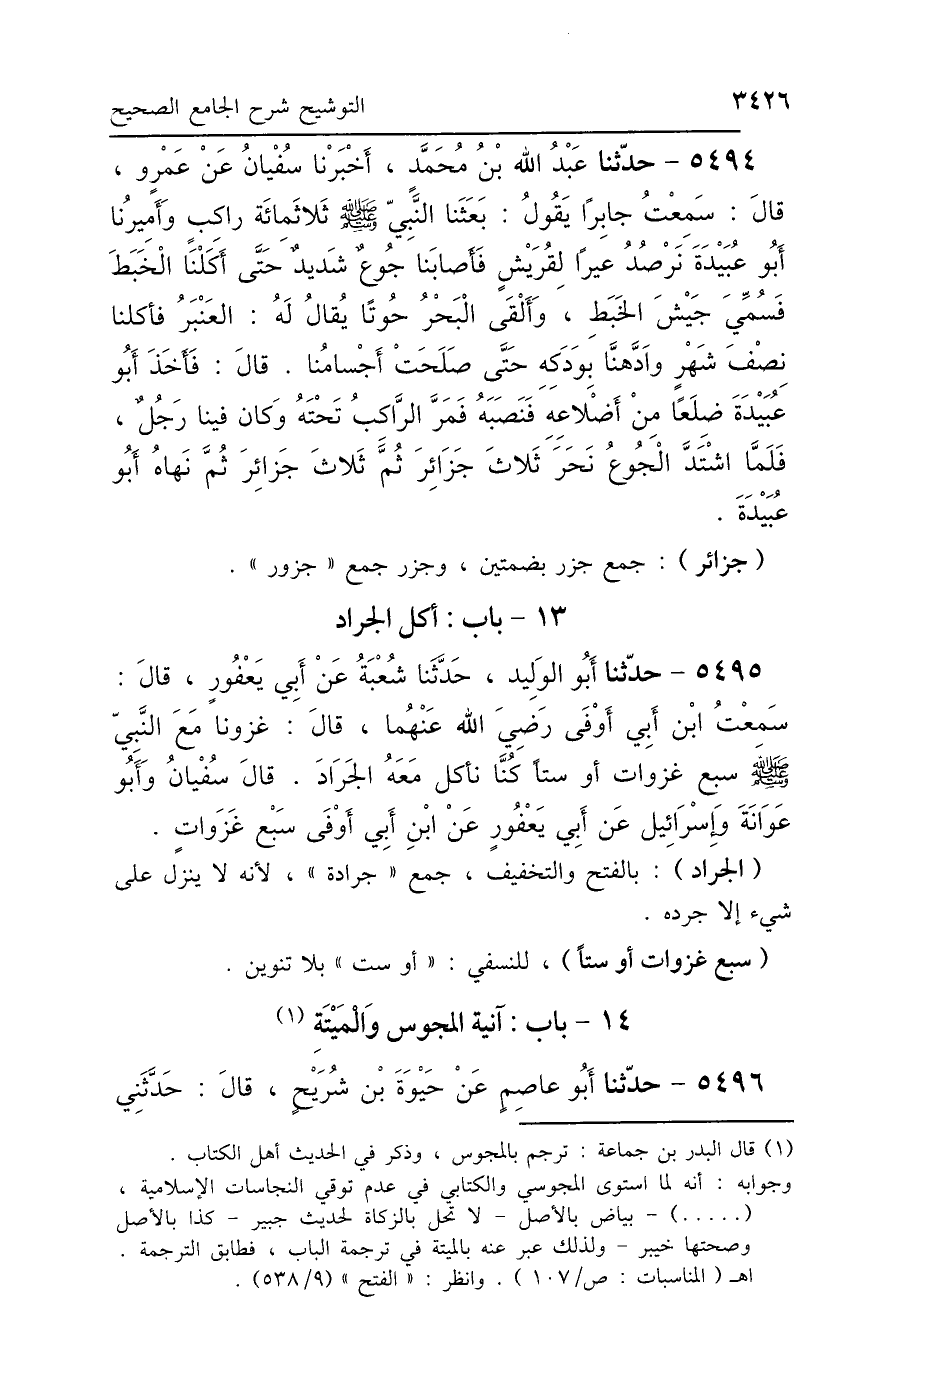 ٣٤٢٦ التوشيح شرح الجامع الصحيح
٥٤٩٤ - حدّثنا عَبْدُ الله بْنُ مُحَمَّدٍ ، أَخْبَرْنا سُفْيانُ عَنْ عَمْرٍو ،
قالَ : سَمِعْتُ جابِرًا يَقُولُ : بَعَثَنا النَّبِيّ ﷺ ثَلاثمائَة راكِبٍ وأَمِيرُنا
أَبُو عُبَيْدَةَ نَرْصُدُ عيرًا لِقُرَيْشٍ فَأصابَنا جُوعٌ شَديدٌ حَتَّى أكَلْنَا الْخَبَطَ
فَسُمِّيَ جَيْشَ الخَبَطِ ، وأَلْقَى الْبَحْرُ حُوتًا يُقالُ لَهُ : العَنْبَرُ فأكلنا
نِصْفَ شَهْرٍ وادَّهنَّا بِوَدَكِهِ حتَّى صَلَحَتْ أجْسامُنا . قالَ : فَأَخَذَ أَبُو
عُبَيْدَةَ ضِلَعًا مِنْ أَضْلاعِهِ فَنَصَبَهُ فَمَرَّ الرَّاكِبُ تَحْتَهُ وَكان فِينا رَجُلٌ ،
فَلَمَّا اشْتَدَّ الْجُوعُ نَحَرَ ثَلاثَ جَزَائِرَ ثُمَّ ثَلاثَ جَزائِرَ ثُمَّ نَهاهُ أَبُو
عُبَيْدَةَ .
( جزائر ) : جمع جزر بضمتين ، وجزر جمع « جزور » .
١٣ - باب : أكل الجراد
٥٤٩٥ - حدّثنا أَبُو الوَلِيد ، حَدَّثَنا شُعْبَةُ عَنْ أَبِي يَعْفُورٍ ، قالَ :
سَمِعْتُ ابْن أَبِي أَوْفَى رَضِيَ الله عَنْهُما ، قالَ : غزونا مَعَ النَّبِيّ
ﷺ سبع غزوات أو ستاً كُنَّا نأكل مَعَهُ الجَرَادَ . قالَ سُفْيانُ وأَبُو
عَوَانَةَ وَإِسْرَائِيل عَن أَبِي يَعْفُورٍ عَنْ ابْنِ أَبِي أَوْفَى سَبْع غَزَواتٍ .
( الجراد ) : بالفتح والتخفيف ، جمع « جرادة » ، لأنه لا ينزل على
شيء إلا جرده .
( سبع غزوات أو ستاً ) ، للنسفي : « أو ست » بلا تنوين .
١٤ - باب : آنية المجوس وَالْمَيْتَةِ (١)
٥٤٩٦ - حدّثنا أَبُو عاصِمٍ عَنْ حَيْوَةَ بْن شُرَيْحٍ ، قالَ : حَدَّثَنِي
(١) قال البدر بن جماعة : ترجم بالمجوس ، وذكر في الحديث أهل الكتاب .
وجوابه : أنه لما استوى المجوسي والكتابي في عدم توقي النجاسات الإسلامية ،
(.....) - بياض بالأصل - لا تحل بالزكاة لحديث جبير - كذا بالأصل
وصحتها خيبر - ولذلك عبر عنه بالميتة في ترجمة الباب ، فطابق الترجمة .
اهـ ( المناسبات : ص/١٠٧ ) . وانظر : « الفتح » (٥٣٨/٩) .